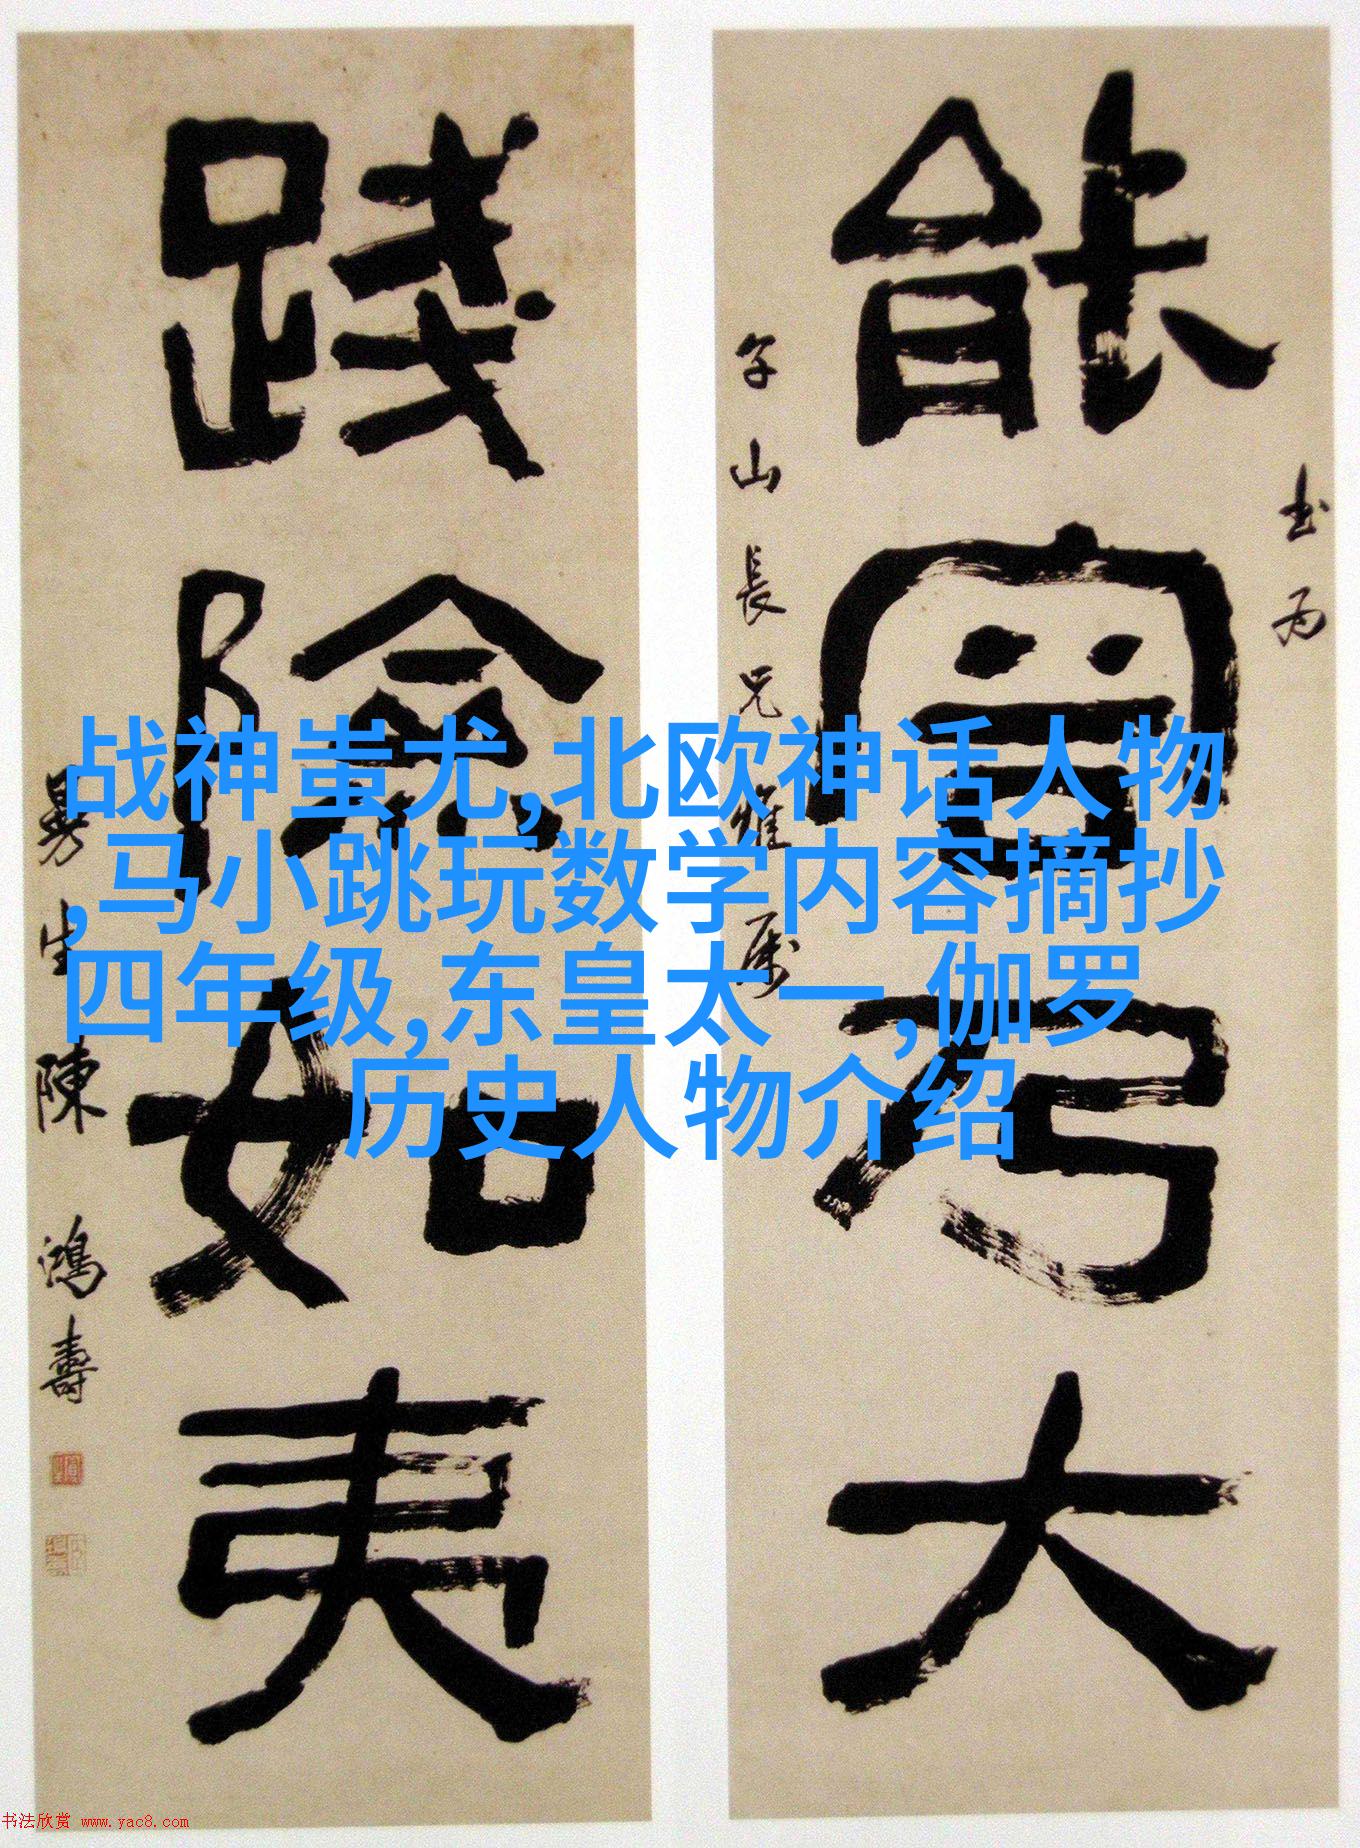 战神蚩尤,北欧神话人物
,马小跳玩数学内容摘抄
四年级,东皇太一,伽罗
历史人物介绍
書為
能大
山長兄雅属
踐險如夷
曼生陳鴻壽
书法欣赏 www.yac8.com